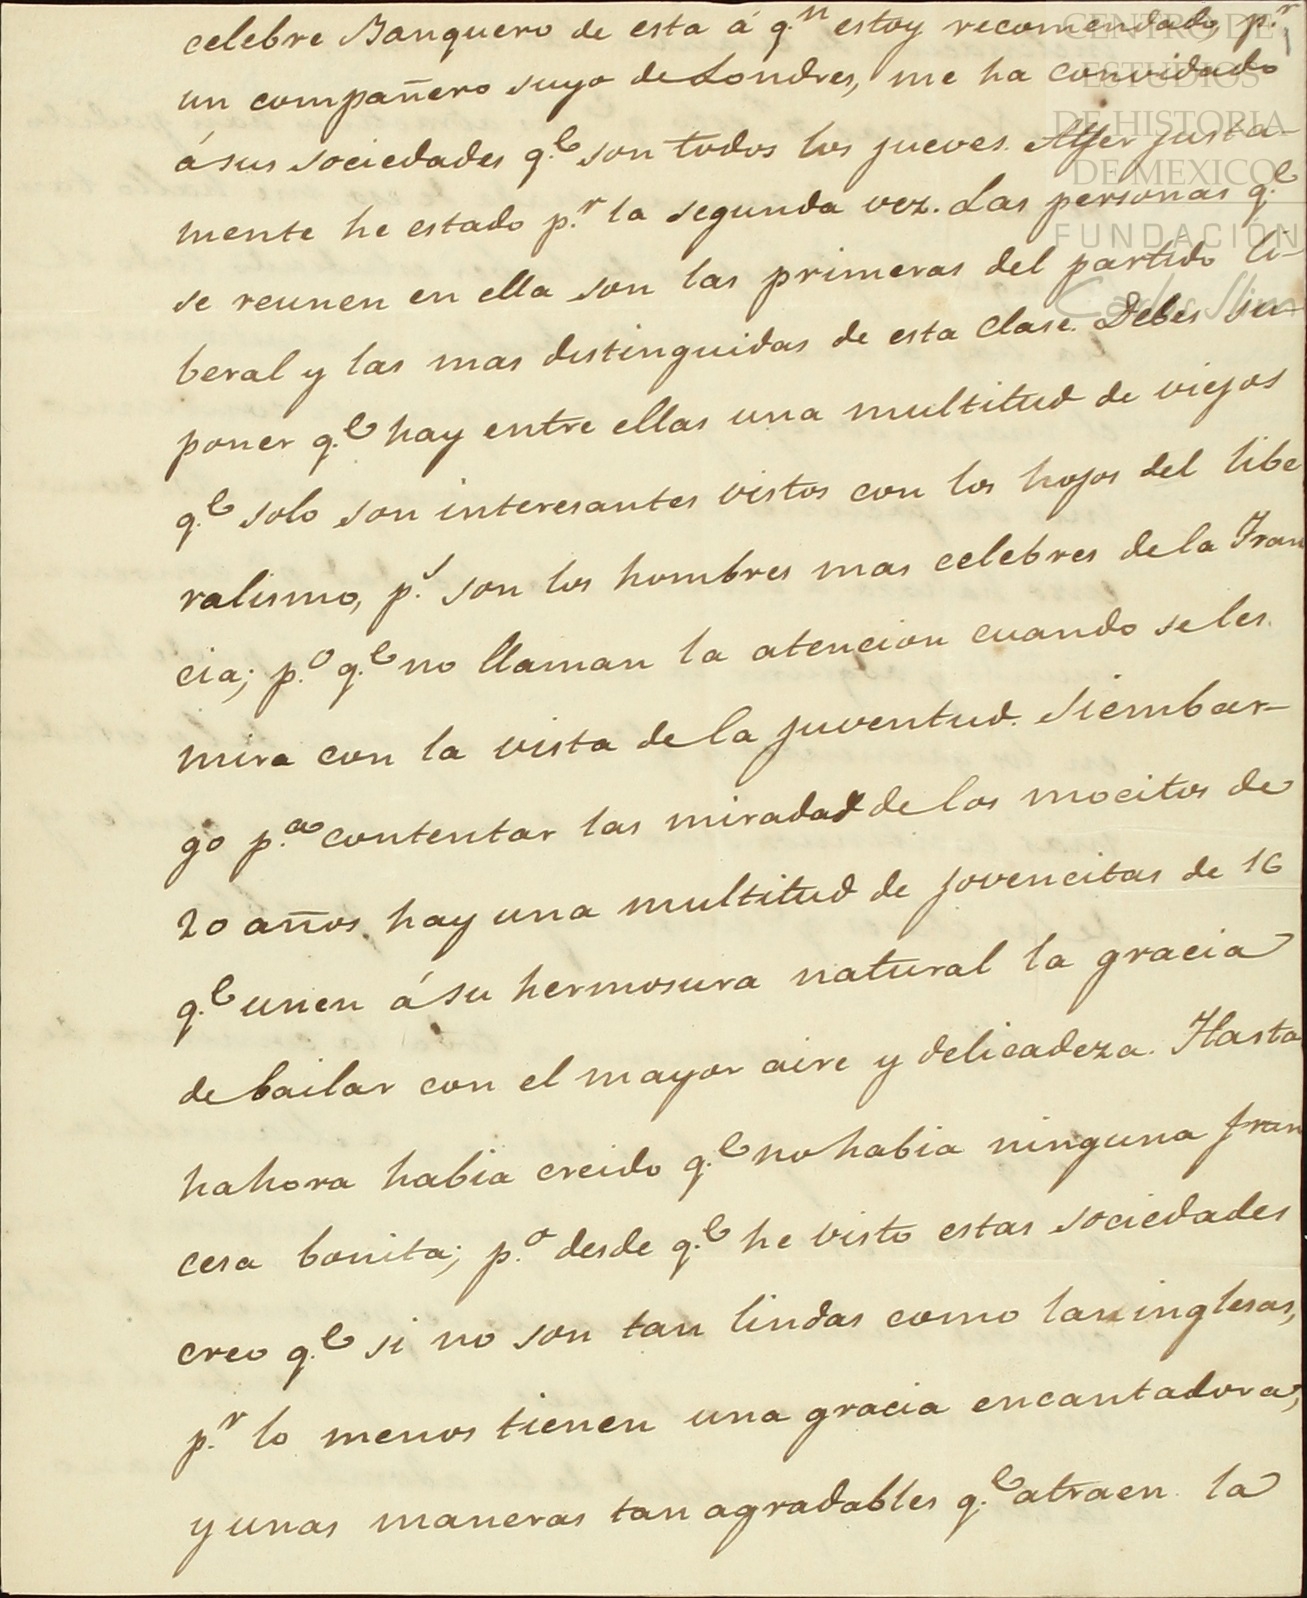 celebre Banquero de esta á q.n estoy recomendado p.r
un compañero suyo de Londres, me ha convidado
á sus sociedades q.e son todos los jueves. Ayer justa-
mente he estado p.r la segunda vez. Las personas q.e
se reunen en ella son las primeras del partido li-
beral y las mas distinguidas de esta clase. Debes su-
poner q.e hay entre ellas una multitud de viejos
q.e solo son interesantes vistos con los hojos del libe
ralismo, p.s son los hombres mas celebres de la Fran
cia; p.o q.e no llaman la atencion cuando se les
mira con la vista de la juventud. Siembar-
go p.a contentar las miradas de los mocitos de
20 años hay una multitud de jovencitas de 16
q.e unen á su hermosura natural la gracia
de bailar con el mayor aire y delicadeza. Hasta
hahora habia creido q.e no habia ninguna fran
cesa bonita; p.o desde q.e he visto estas sociedades
creo q.e si no son tan lindas como las inglesas,
p.r lo menos tienen una gracia encantadora,
y unas maneras tan agradables q.e atraen la
CENTRO DE
ESTUDIOS
DE HISTORIA
DE MEXICO
FUNDACIÓN
Carlos Slim